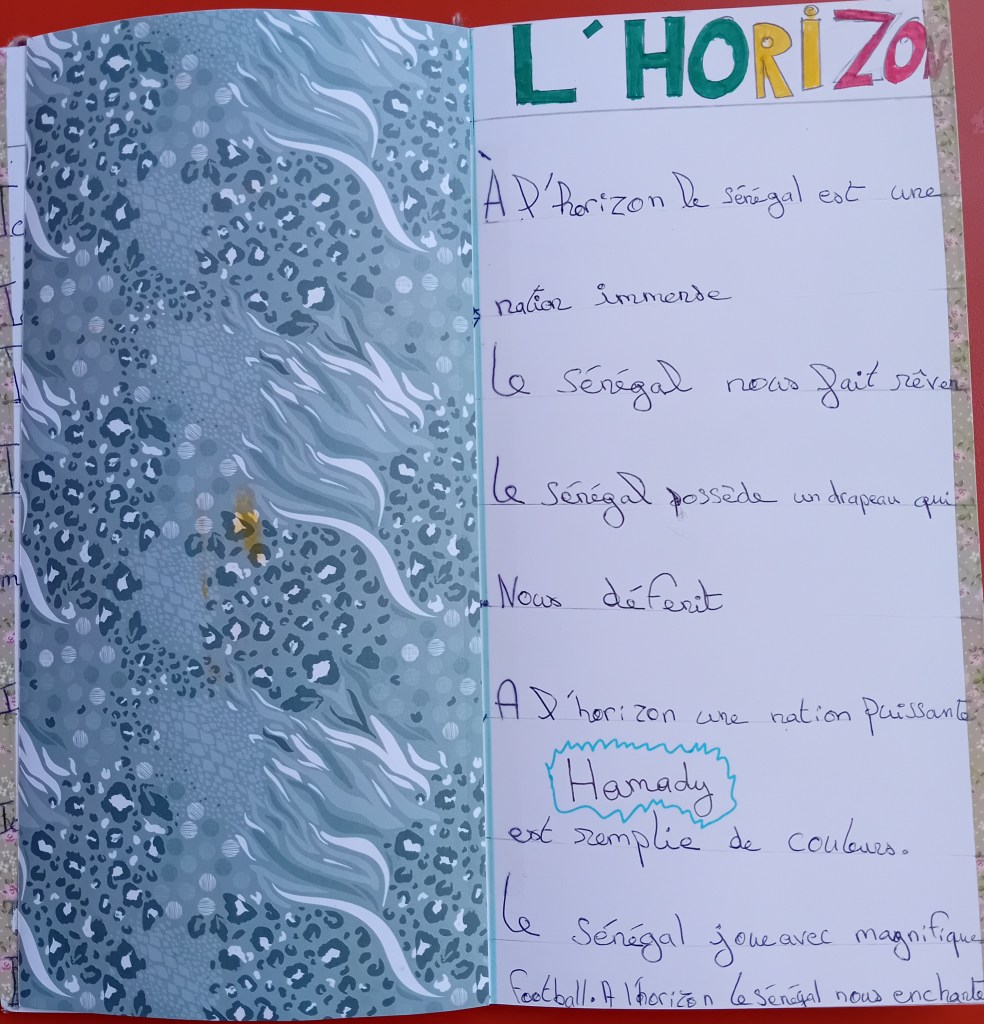 L'HORIZON
À l'horizon le sénégal est une
nation immense
Le sénégal nous fait rêver
Le sénégal possède un drapeau qui
Nous défenit
A l'horizon une nation puissante
Hamady
est remplie de couleurs.
Le sénégal joue avec magnifique
football. A l'horizon le sénégal nous enchante